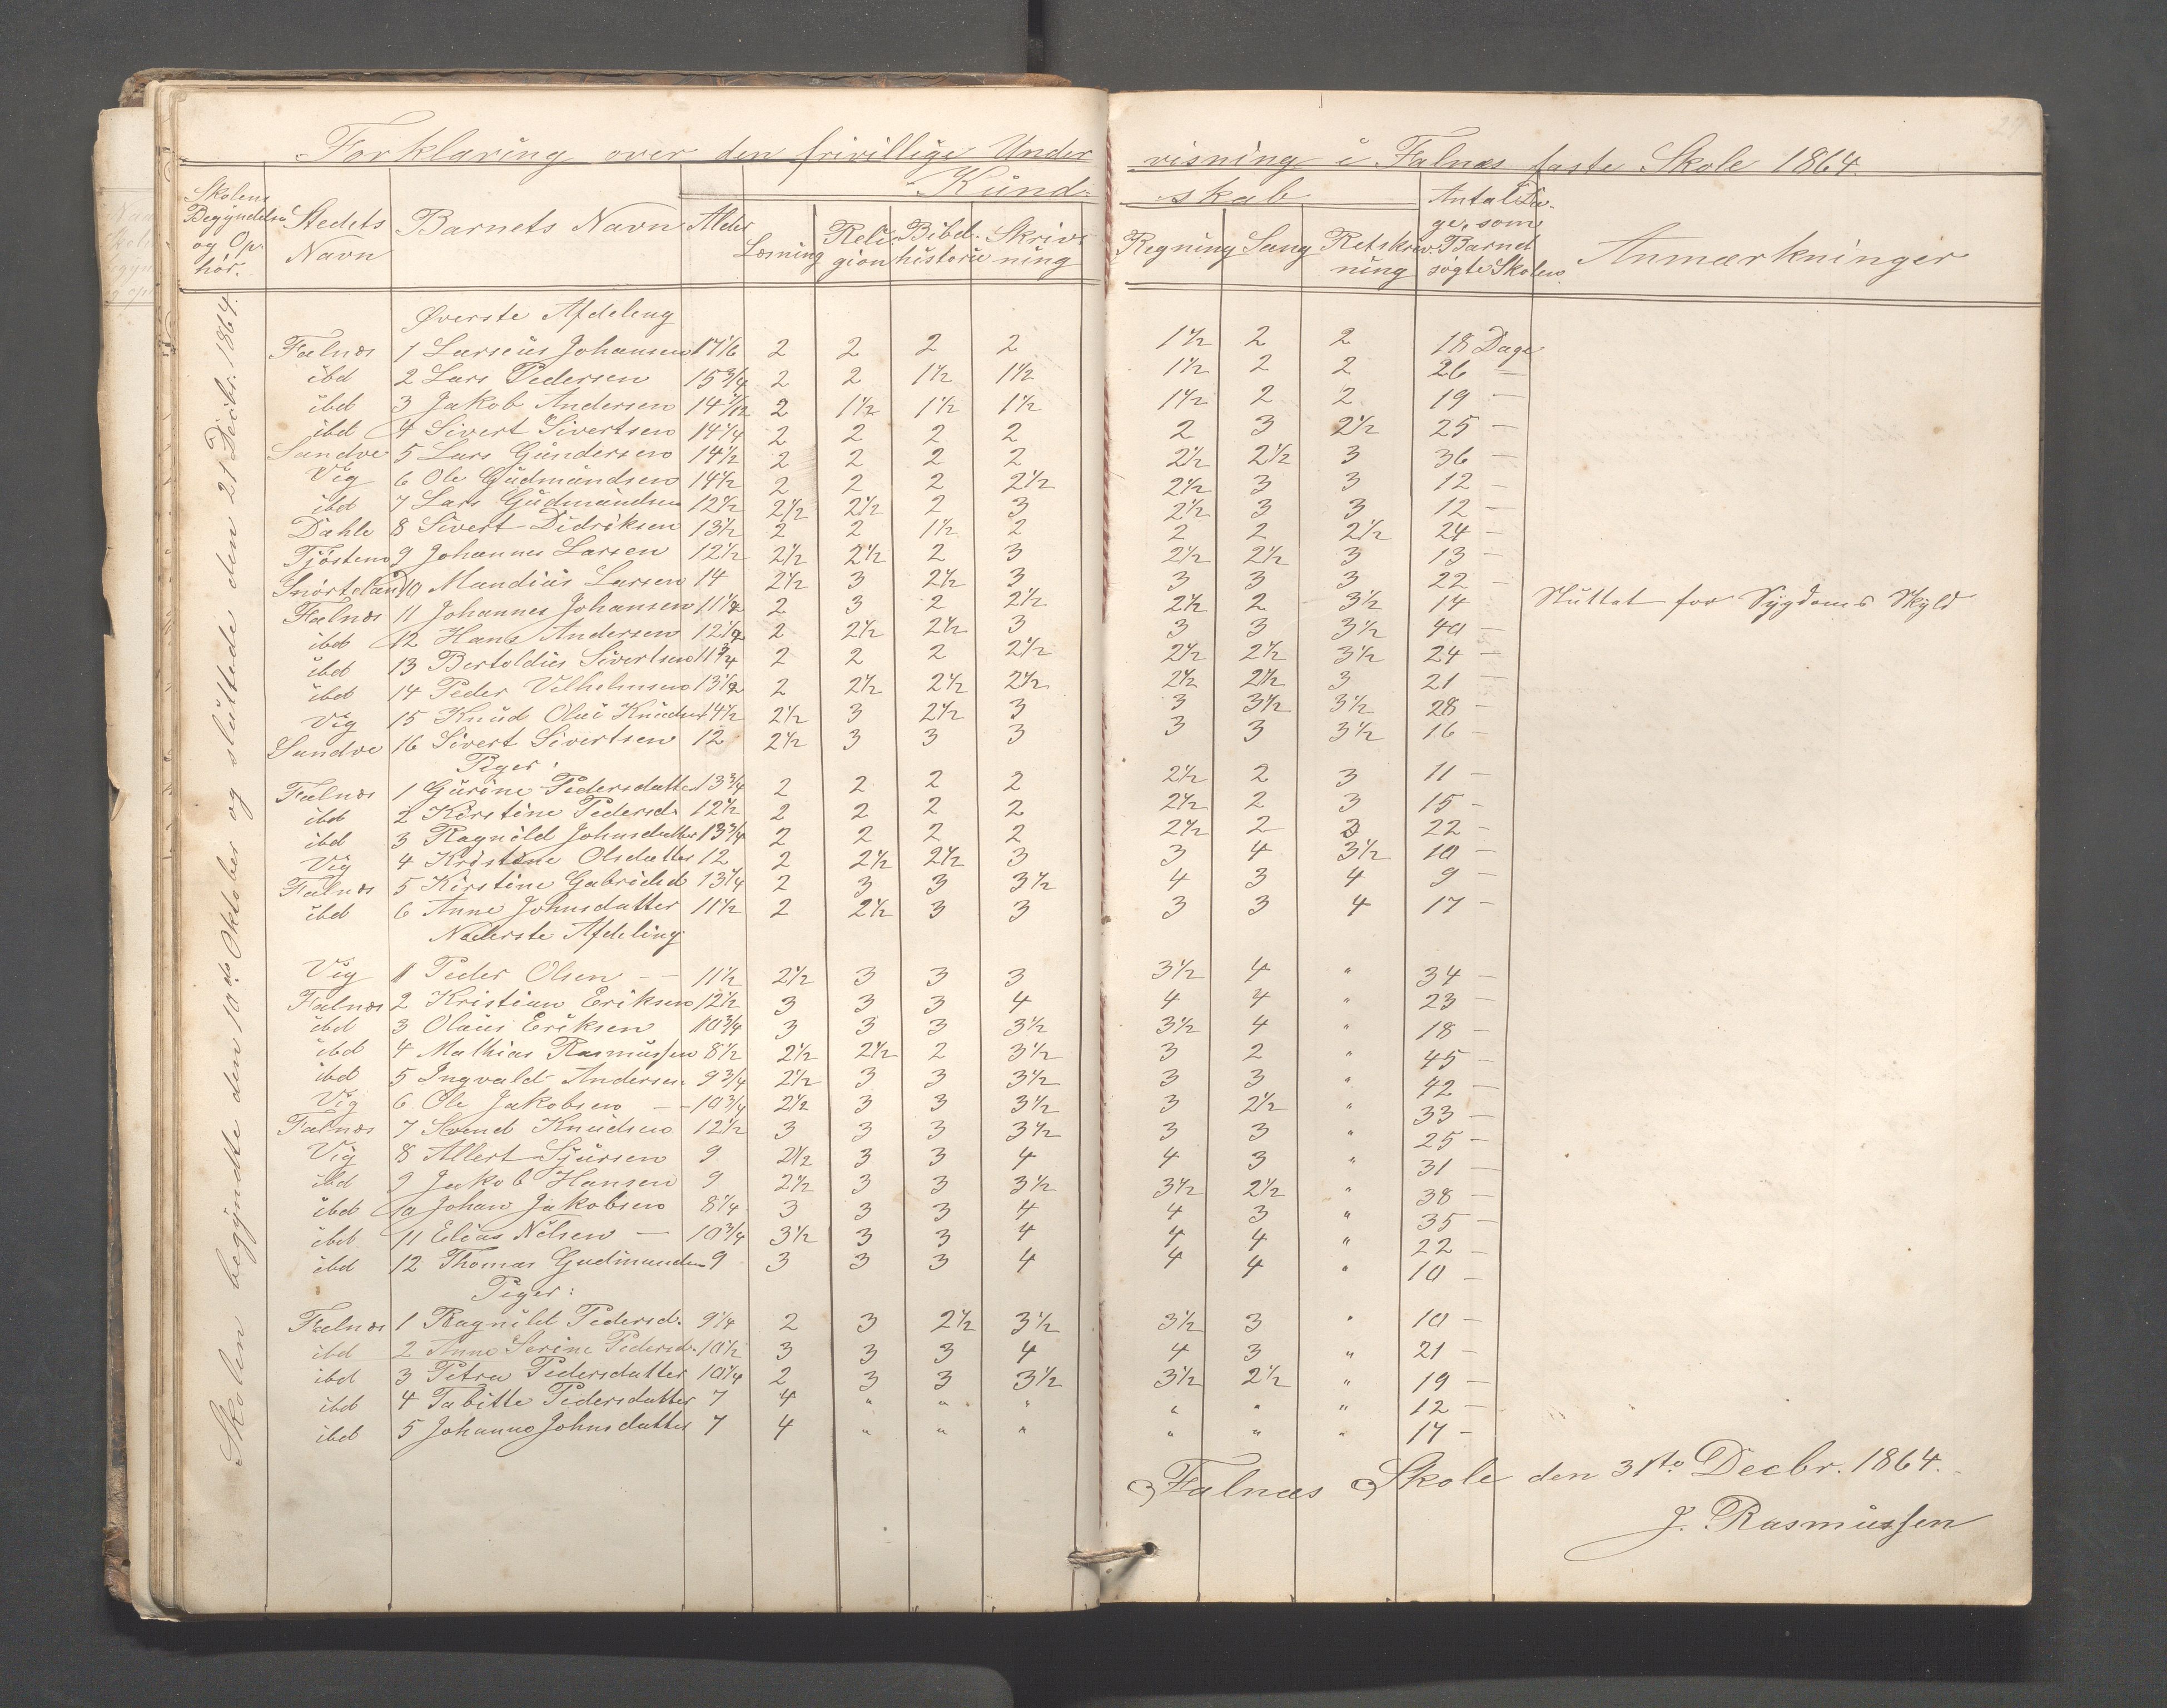 Forklaring over den frivillige Undervisning i Falnæs faste Skole 1864
Kundskab
Skolens Begyndelse og Ophør.
Stedets Navn
Barnets Navn
Alder
Læsning
Religion
Bibelhistorie
Skrivning
Regning
Sang
Retskrivning
Antal Dage, som Barnet søgte Skolen.
Anmærkninger
Skolen begyndte den 10de Oktober og sluttede den 21 Decbr. 1864.
Øverste Afdeling
Falnæs 1 Larseus Johansen 17 1/6 2 2 2 2 1 1/2 2 2 18 Dage
ibd 2 Lars Pedersen 15 3/4 2 2 1 1/2 1 1/2 1 1/2 2 2 26 —
ibd 3 Jakob Andersen 14 7/12 2 1 1/2 1 1/2 1 1/2 1 1/2 2 2 19 —
ibd 4 Sivert Sivertsen 14 1/4 2 2 2 2 2 3 2 1/2 25 —
Sandve 5 Lars Gundersen 14 1/2 2 2 2 2 2 1/2 2 1/2 3 36 —
Vig 6 Ole Gudmundsen 14 1/2 2 2 2 2 1/2 2 1/2 3 3 12 —
ibd 7 Lars Gudmundsen 12 1/2 2 1/2 2 1/2 2 3 2 1/2 3 3 12 —
Dahle 8 Sivert Didriksen 13 1/2 2 2 1 1/2 2 2 2 2 1/2 24 —
Tjøstem 9 Johannes Larsen 12 1/2 2 1/2 2 1/2 2 3 2 1/2 2 1/2 3 13 —
Snørteland 10 Mandius Larsen 14 2 1/2 3 2 1/2 3 3 3 3 22 —
Falnæs 11 Johannes Johansen 11 1/2 2 3 2 2 1/2 2 1/2 2 3 1/2 14 Sluttet for Sygdoms Skyld
ibd 12 Hans Andersen 12 1/2 2 2 1/2 2 1/2 3 3 3 3 1/2 40 —
ibd 13 Bertoldius Sivertsen 11 3/4 2 2 2 2 1/2 2 1/2 2 1/2 3 1/2 24 —
ibd 14 Peder Vilhelmsen 13 1/2 2 2 1/2 2 1/2 2 1/2 2 1/2 2 1/2 3 21 —
Vig 15 Knud Olai Knudsen 14 1/2 2 1/2 3 2 1/2 3 3 3 1/2 3 1/2 28 —
Sandve 16 Sivert Sivertsen 12 2 1/2 3 3 3 3 3 3 1/2 16 —
Piger:
Falnæs 1 Gurine Pedersdatter 13 3/4 2 2 2 2 2 1/2 2 3 11 —
ibd 2 Kirstine Pedersd. 12 1/2 2 2 2 2 2 1/2 2 3 15 —
ibd 3 Ragnild Johnsdatter 13 3/4 2 2 2 2 2 1/2 2 3 22 —
Vig 4 Kristine Olsdatter 12 2 2 1/2 2 1/2 3 3 4 3 1/2 10 —
Falnæs 5 Kirstine Gabrielsd 13 1/4 2 3 3 3 1/2 4 3 4 9 —
ibd 6 Anne Johnsdatter 11 1/2 2 2 1/2 3 3 3 3 4 17 —
Nederste Afdeling
Vig 1 Peder Olsen — — 11 1/2 2 1/2 3 3 3 3 1/2 4 " 34 —
Falnæs 2 Kristian Eriksen 12 1/2 3 3 3 4 4 4 " 23 —
ibd 3 Olaus Eriksen 10 3/4 3 3 3 3 1/2 3 1/2 4 " 18 —
ibd 4 Mathias Rasmussen 8 1/2 2 1/2 2 1/2 2 3 1/2 3 2 " 45 —
ibd 5 Ingvald Andersen 9 3/4 2 1/2 3 3 3 1/2 3 3 " 42 —
Vig 6 Ole Jakobsen — — 10 3/4 2 1/2 3 3 3 1/2 3 2 1/2 " 33 —
Falnæs 7 Svend Knudsen 12 1/2 3 3 3 3 1/2 3 3 " 25 —
Vig 8 Allert Sjursen 9 2 1/2 3 3 4 4 3 " 31 —
ibd 9 Jakob Hansen 9 2 1/2 3 3 3 1/2 3 1/2 2 1/2 " 38 —
ibd 10 Johan Jakobsen 8 1/4 3 3 3 4 4 3 " 35 —
ibd 11 Elias Nilsen — 10 3/4 3 1/2 3 3 4 4 4 " 22 —
ibd 12 Thomas Gudmundsen 9 3 3 3 4 4 4 " 10 —
Piger:
Falnæs 1 Ragnild Pedersd. 9 1/4 2 3 2 1/2 3 1/2 3 1/2 3 " 10 —
ibd 2 Anne Serine Pedersd. 10 1/2 3 3 3 4 4 3 " 21 —
ibd 3 Petra Pedersdatter 10 1/4 2 3 3 3 1/2 3 1/2 2 1/2 " 19 —
ibd 4 Tabitte Pedersdatter 7 4 " " " " " " 12 —
ibd 5 Johanne Johnsdatter 7 4 " " " " " " 17 —
Falnæs Skole den 31te Decbr. 1864.
J. Rasmussen